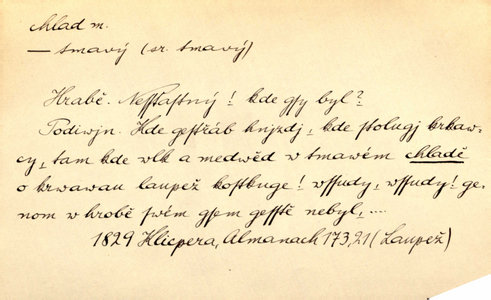 chlad m.
— tmavý (sr. tmavý)
Hrabě. Nešťastný! kde gsy byl?
Podiwjn. Kde gestřáb hnjzdj, kde stolugj krkaw-
cy, tam kde wlk a medwěd w tmawém chladě
o krwawau laupež kostkuge! wssudy, wssudy! ge-
nom w hrobě swém gsem gesstě nebyl, ....
1829 Klicpera, Almanach 173,21 (Laupež)